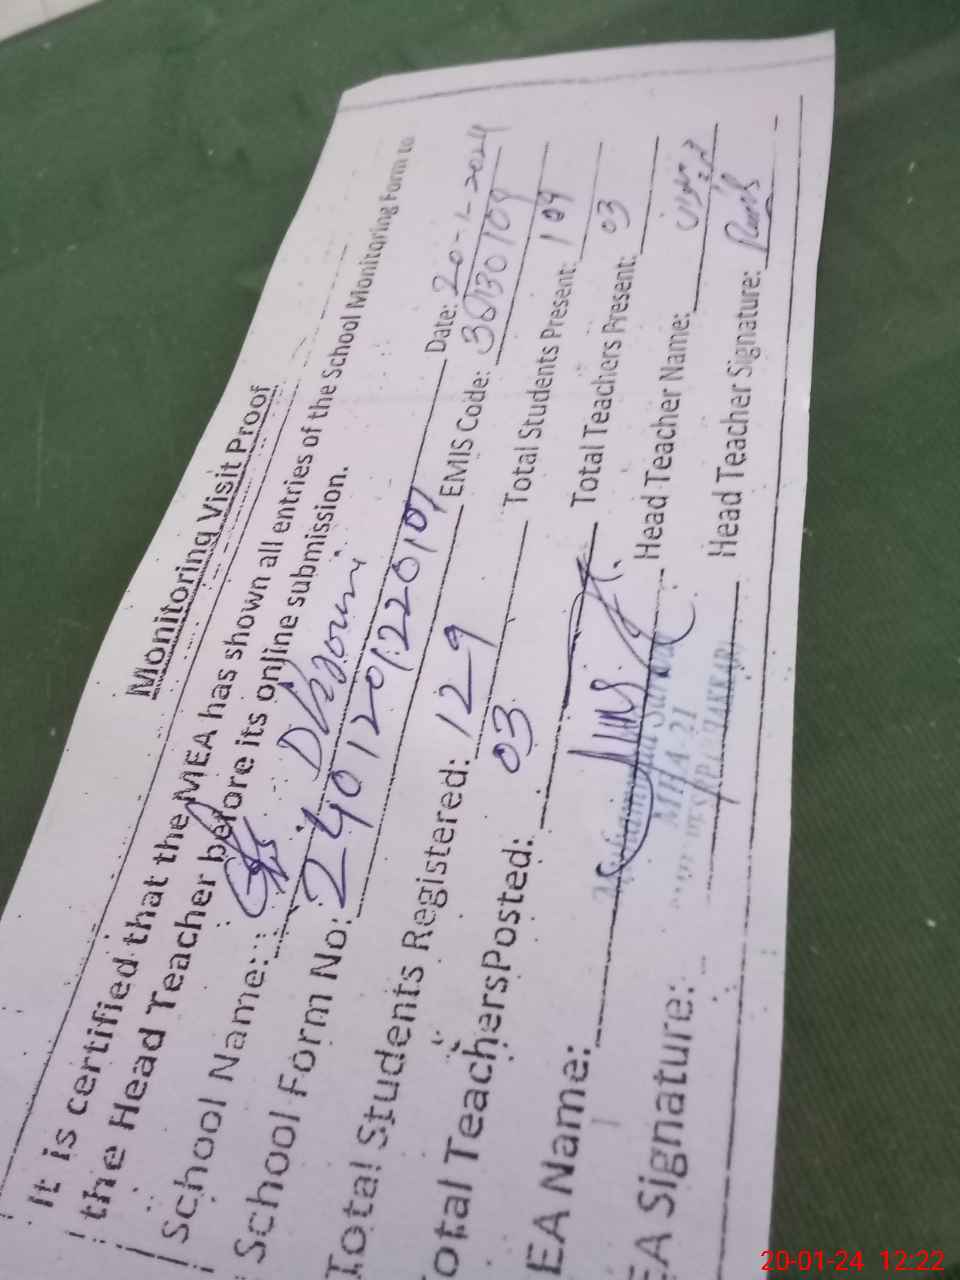 Monitoring Visit Proof
It is certified that the MEA has shown all entries of the School Monitoring Form to
the Head Teacher before its online submission.
School Name: GPS Date: 20-1-2024
School Form No: 2401201220107 EMIS Code: 36130109
Total Students Registered: 129 Total Students Present: 109
otal Teachers Posted: 03 Total Teachers Present: 03
EA Name: Head Teacher Name:
Muhammad
MEA-21
EA Signature: Head Teacher Signature:
20-01-24 12:22